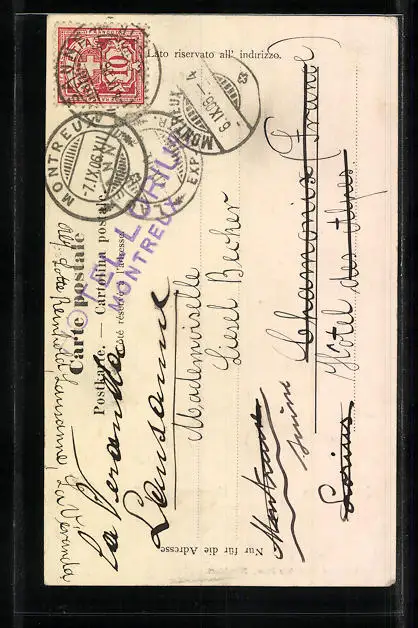 Carte postale
Postkarte. — Cartolina postale
Côté réservé à l'adresse
Nur für die Adresse
Lato riservato all' indirizzo.
10
FRANCO
MONTREUX
-7.IX.06.XI
MONTREUX
6.IX.06
EXP.
HOTEL LORIUS
MONTREUX
Mademoiselle
Liesel Becher
Hôtel des Alpes
Chamonix (France)
Lorius
Montreux
suisse
La Veranda
Lausanne
Abs. Lotte Reinhold, Lausanne, La Véranda